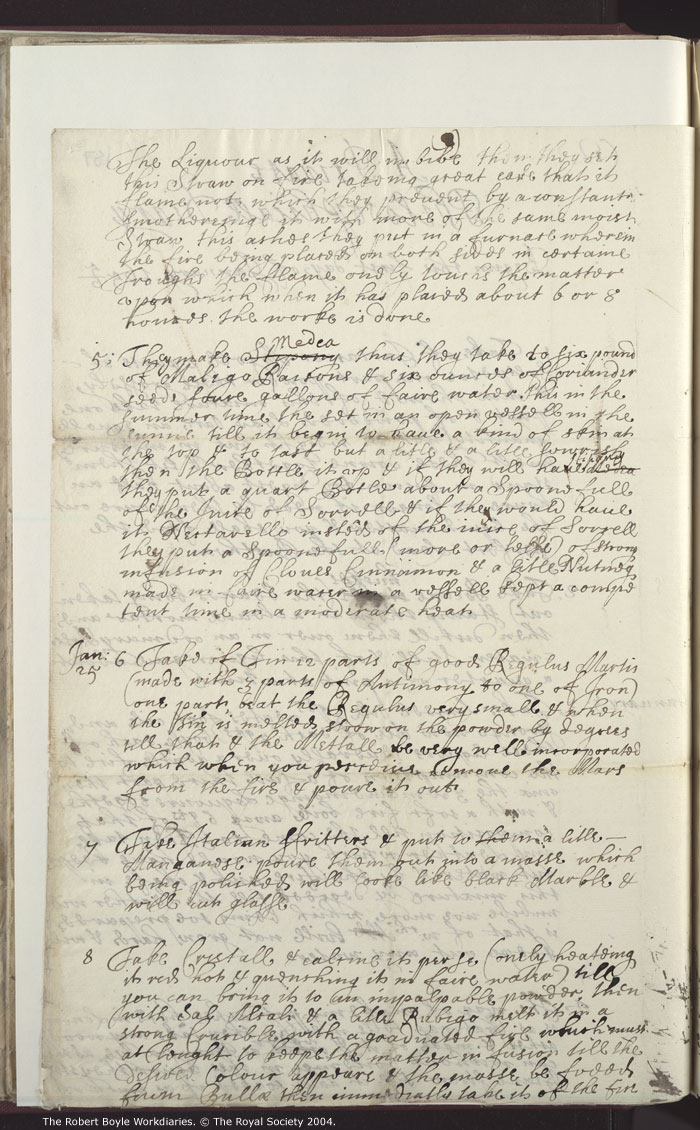 The Liquour as it will imbibe then they set
this Straw on fire takeing great care that it
flame not which they prevent by a constante
smotheringe it with more of the same moist
Straw, this ashes they put in a furnace wherein
the fire being placed on both sides in certaine
Troughs the flame onely touchs the matter
upon which when it has placed about 6 or 8
houres the worke is done
Medea
5: They make Stypony thus they take to six pound
of Maligo Raisons & six ounces of Coriander
seed foure gallons of faire water this in the
summer time the set in an open vessell in the
sunne till it begin to have a kind of skin at
the top & to tast but a litle & a litle sowrish
then the Bottle it up & if they will have Medea
they put a quart Botle about a Spoone full
of the Juice of Sorrell & if they would have
it insted of the juice of Sorrell
they put a Spoonefull (more or lesse) of strong
infusion of Cloves Cinnamon & a litle Nutmeg
made in faire water in a vessell kept a compe
tent time in a moderate heat.
Jan: 25
6 Take of Tin 12 parts of good Regulus Martis
(made with 3 parts of Antimony to one of Iron)
one part, beat the Regulus very small & when
the Tin is melted strow on the powder by degrees
till that & the Mettall be very well incorporated
which when you perceive remove the Mars
from the fire & poure it out.
7 Take Italian ffritters & put to them a litle
Manganese poure them out into a masse which
being polished will looke like black Marble &
will cut glasse
8 Take Cristall & calcine it per se (onely heateing
it red hot & quenching it in faire water) till
you can bring it to an impalpable powder, then
with Sal Alcali & a litle Rubigo melt it in a
strong Crucible with a graduated fire which must
at lenght to keepe the matter in fusion till the
desired Colour appeare & the masse be freed
from Bullæ then immediatly take it of the fire
The Robert Boyle Workdiaries. © The Royal Society 2004.